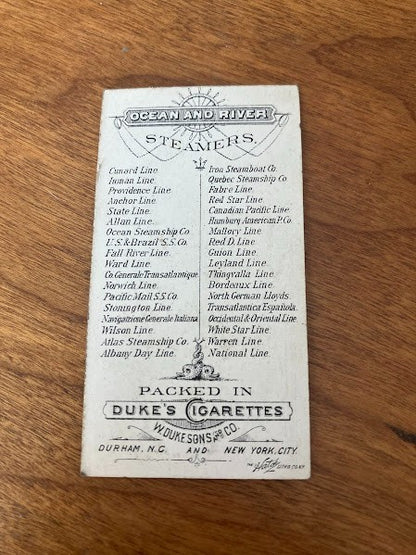 OCEAN AND RIVER
STEAMERS.
Cunard Line.
Inman Line.
Providence Line.
Anchor Line.
State Line.
Allan Line.
Ocean Steamship Co.
U.S. & Brazil S.S. Co.
Fall River Line.
Ward Line.
Co Generale Transatlantique.
Norwich Line.
Pacific Mail S.S. Co.
Stonington Line.
Navigatzione Generale Italiana
Wilson Line.
Atlas Steamship Co.
Albany Day Line.
Iron Steamboat Co.
Quebec Steamship Co
Fabre Line.
Red Star Line.
Canadian Pacific Line.
Hamburg American P. Co.
Mallory Line.
Red D. Line.
Guion Line.
Leyland Line.
Thingvalla Line.
Bordeaux Line.
North German Lloyds.
Transatlantica Española.
Occidental & Oriental Line.
White Star Line.
Warren Line.
National Line.
PACKED IN
DUKE'S CIGARETTES
W. DUKE SONS AND CO.
DURHAM, N.C. AND NEW YORK, CITY.
THE Hatch LITHO. CO. N.Y.